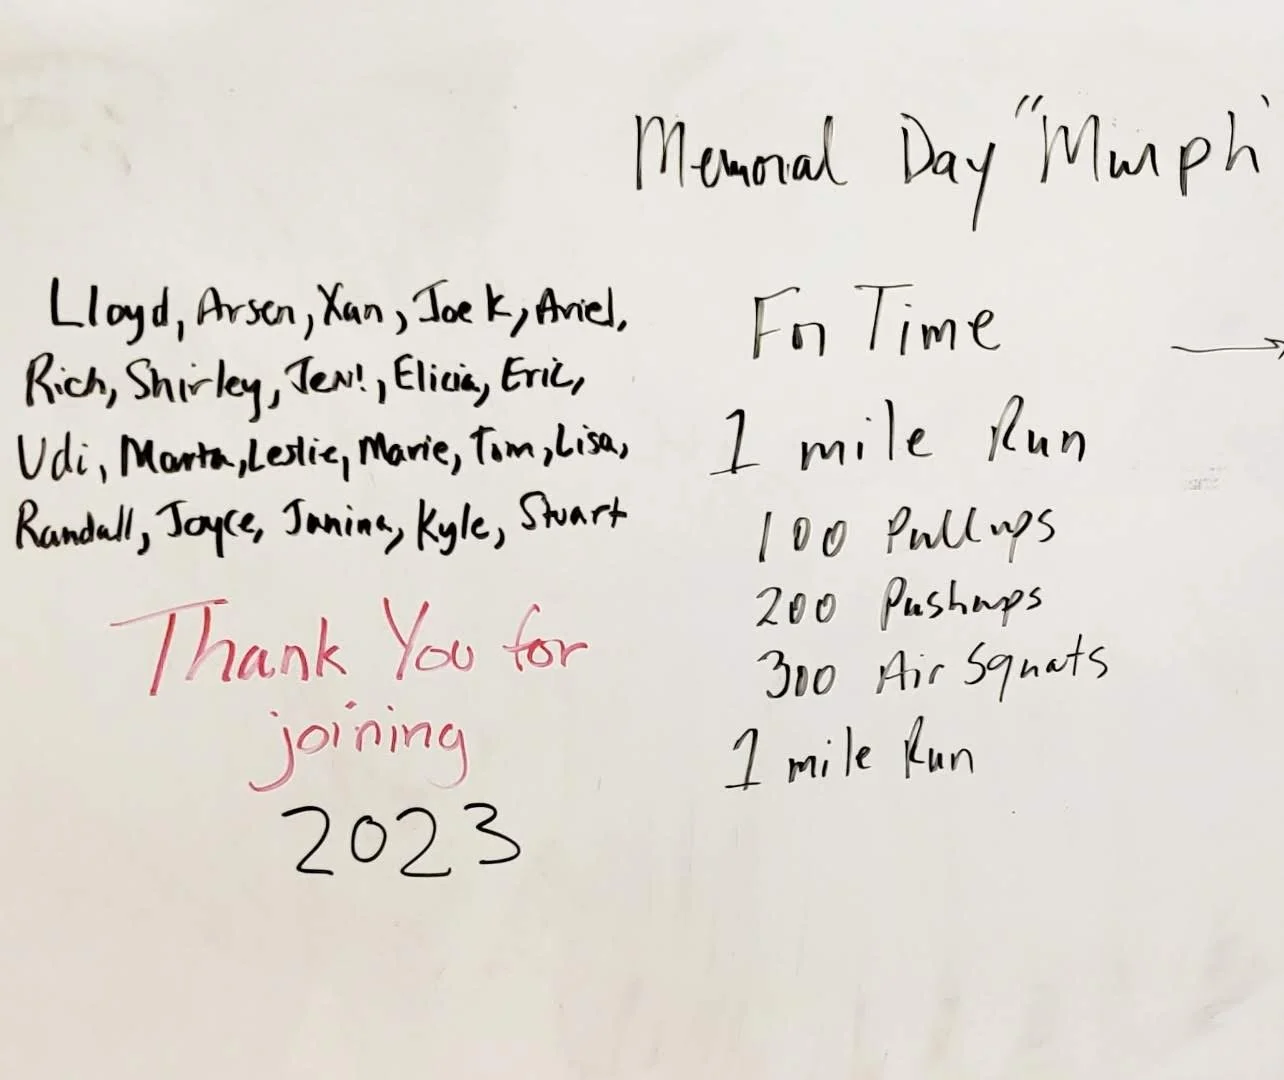 Memorial Day "Murph"
Lloyd, Arsen, Xan, Joe K, Ariel,
Rich, Shirley, Jen!, Elicia, Eric,
Udi, Marta, Leslie, Marie, Tom, Lisa,
Randall, Joyce, Janina, Kyle, Stuart
Thank You for
joining
2023
For Time →
1 mile Run
100 Pullups
200 Pushups
300 Air Squats
1 mile Run